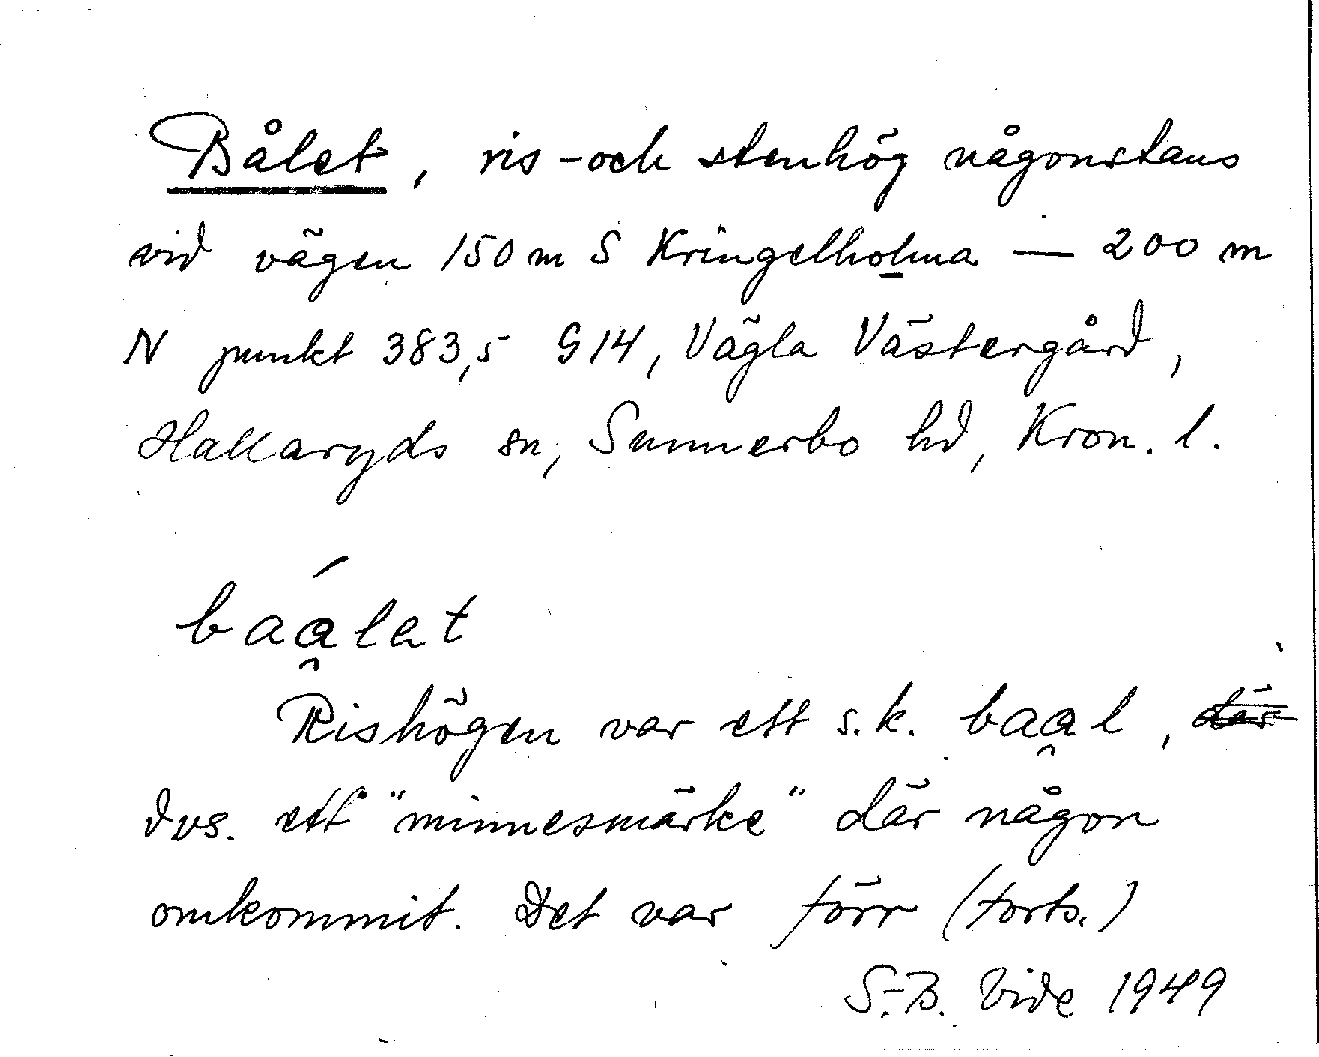 Bålet, ris-och stenhög någonstans
vid vägen 150 m S Kringelholma — 200 m
N punkt 383,5 G14, Vägla Västergård,
Hallaryds sn, Sunnerbo hd, Kron. l.
baá̯lat
Rishögen var ett s.k. baa̯l, där
dvs. ett "minnesmärke" där någon
omkommit. Det var förr (forts.)
S.-B. Vide 1949